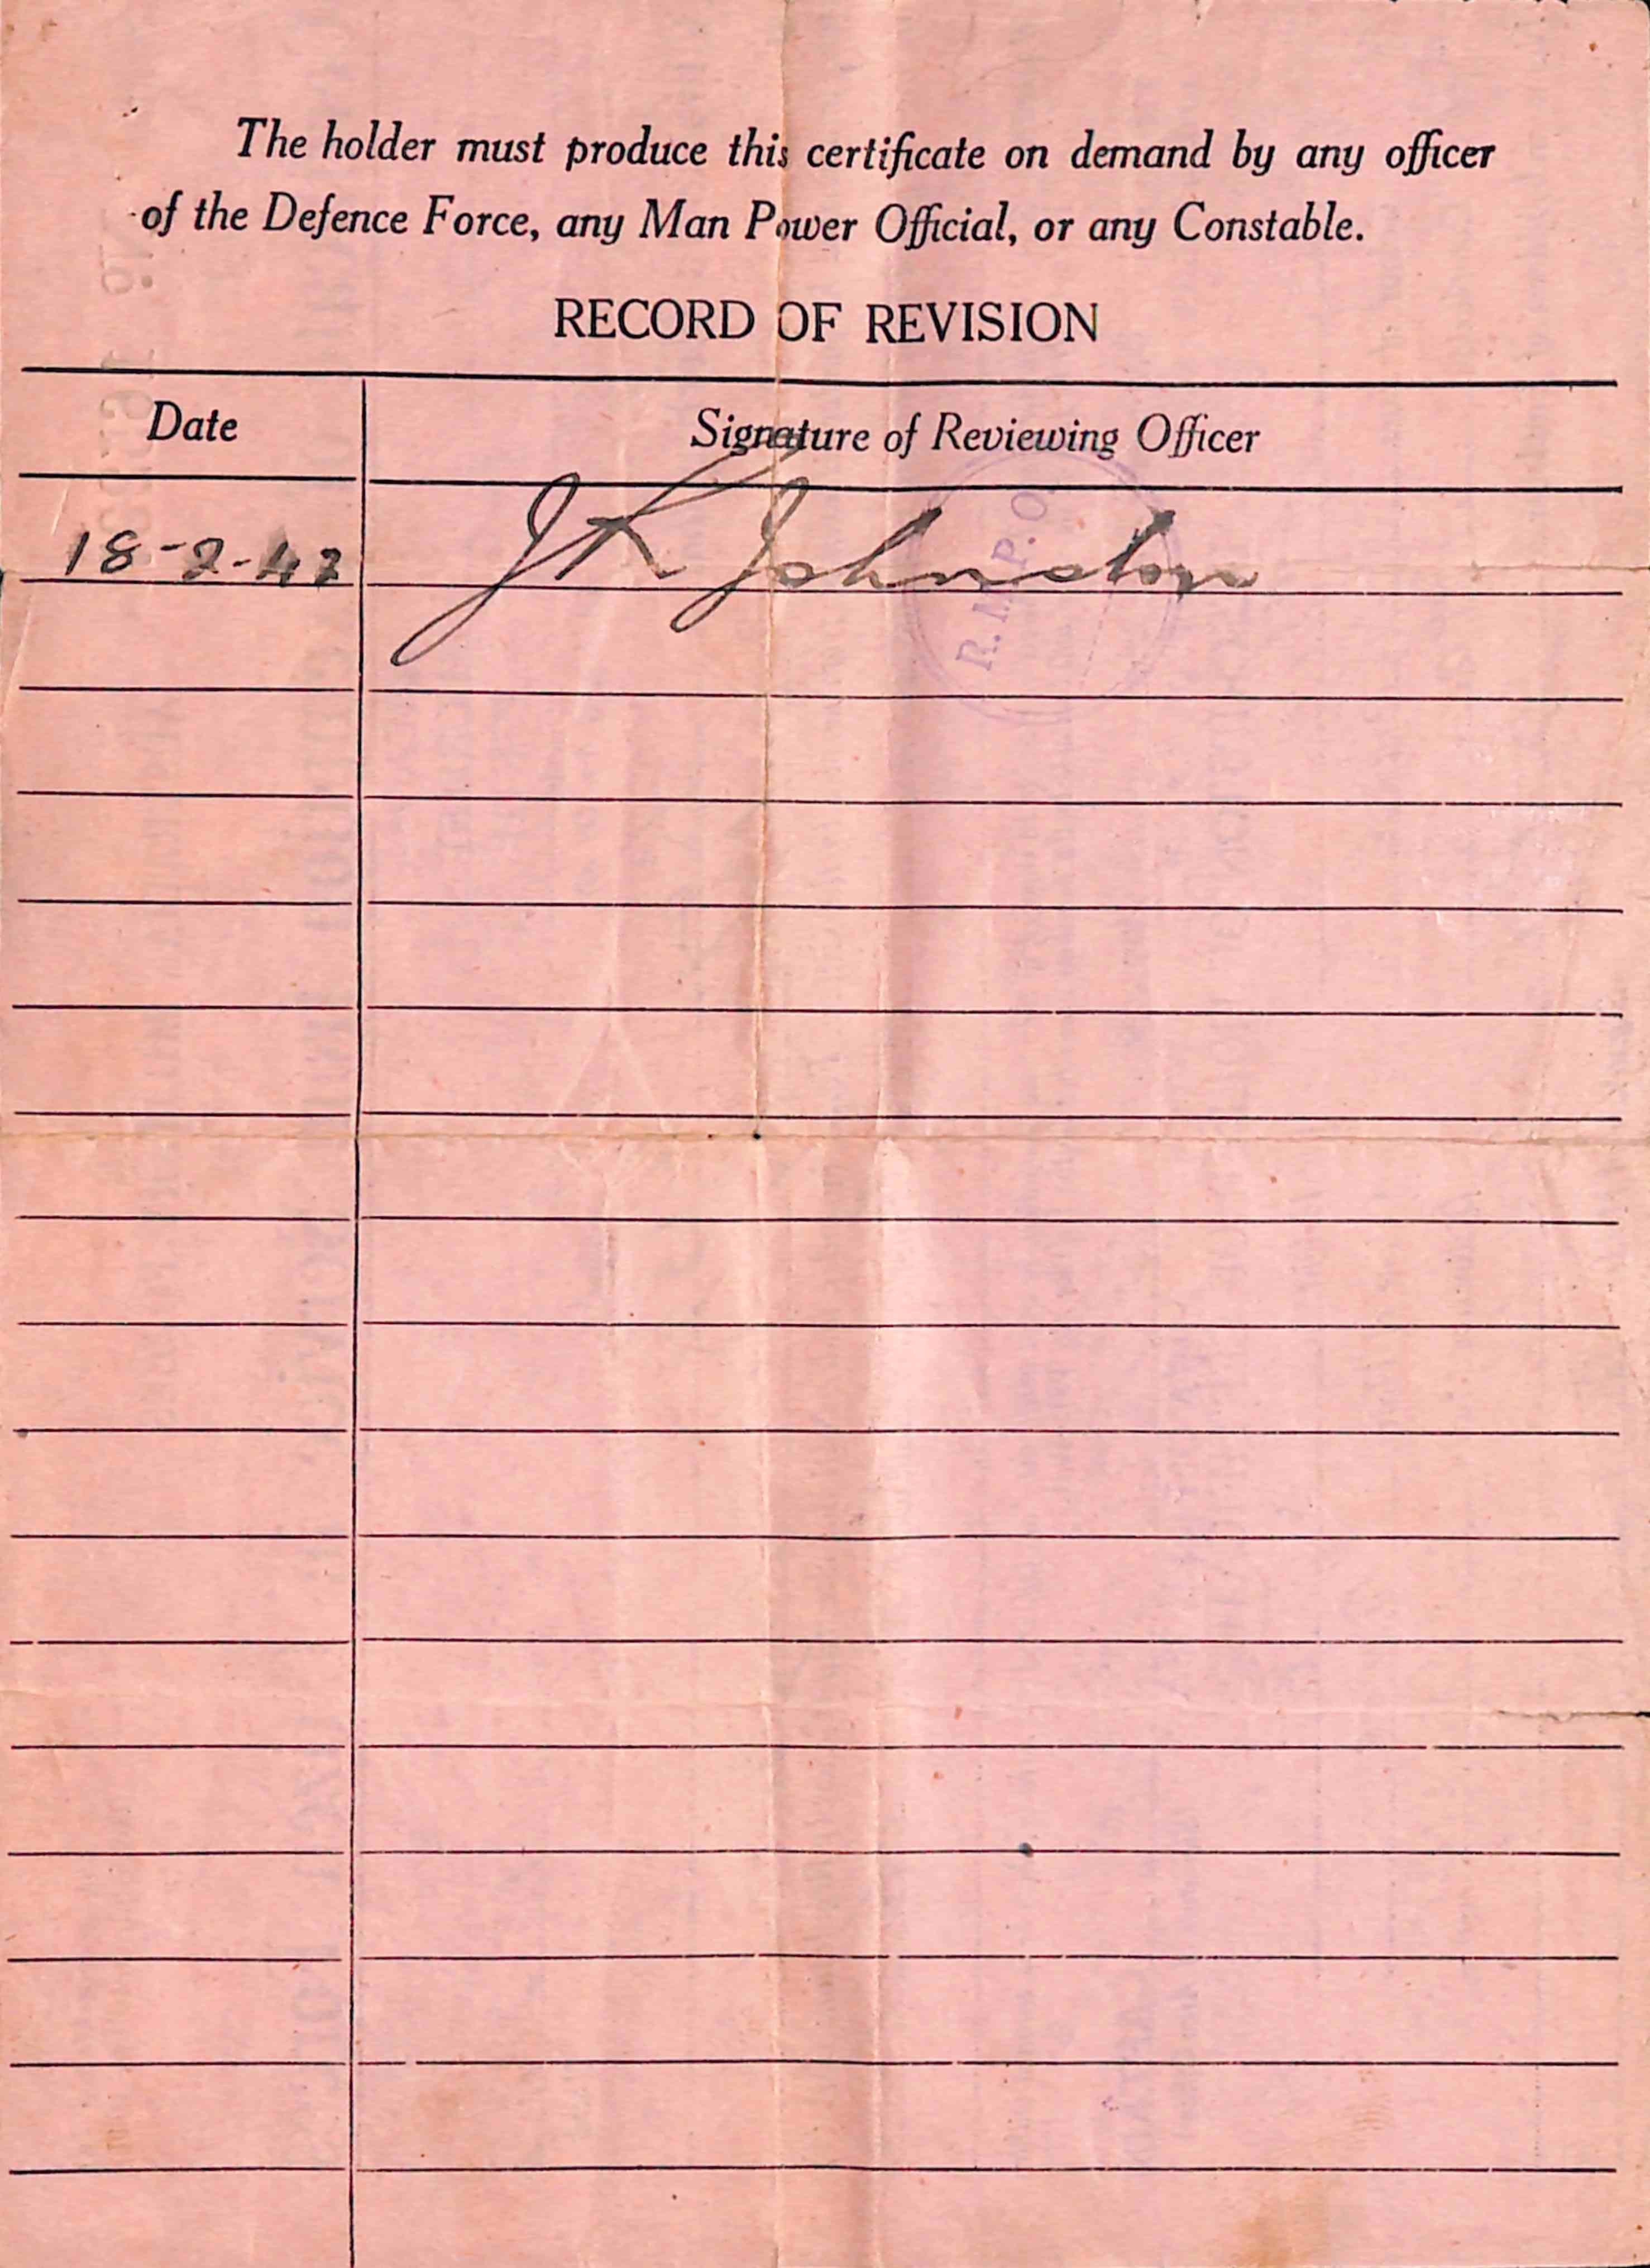 The holder must produce this certificate on demand by any officer
of the Defence Force, any Man Power Official, or any Constable.
RECORD OF REVISION
Date Signature of Reviewing Officer
18-2-42 JK Johnston
R.M.P.O.